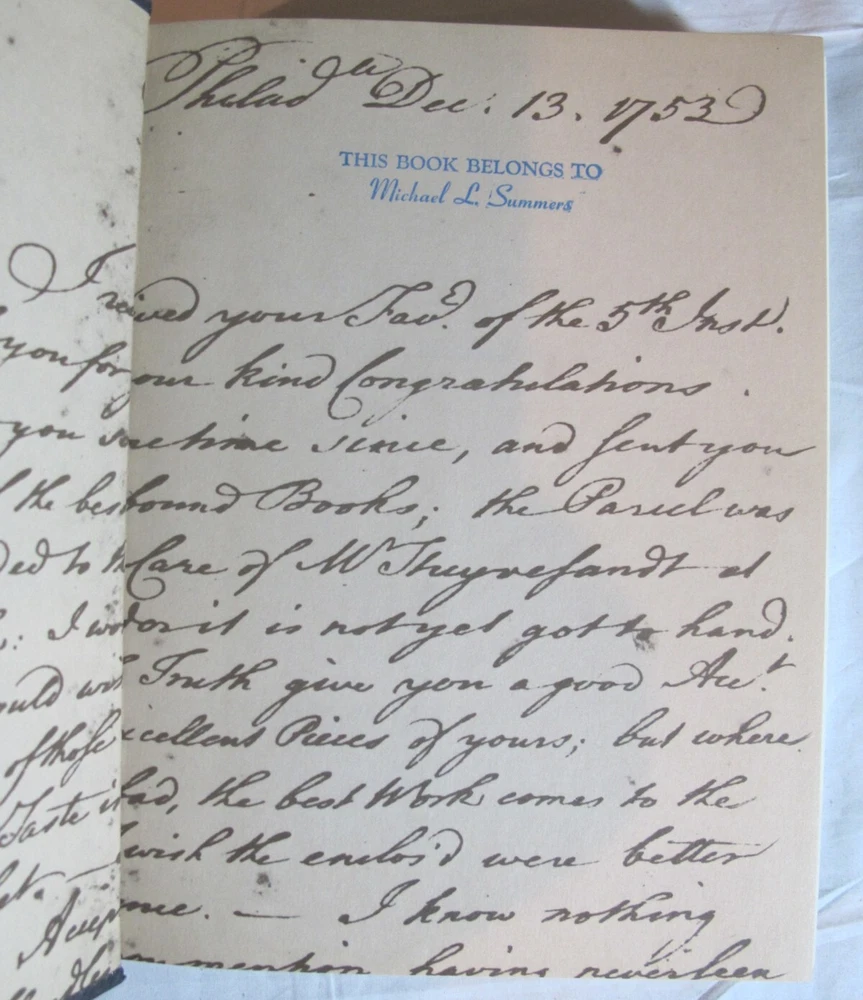 Philad.ia Dec. 13. 1753
THIS BOOK BELONGS TO
Michael L. Summers
I received your Fav.r of the 5th Inst.
you for our kind Congratulations.
you sometime since, and sent you
the best bound Books; the Parcel was
to Care of Mr Stuyvesandt at
I wonder it is not yet got to hand.
with Truth give you a good Acc.t
of those excellent Pieces of yours; but where
Taste is bad, the best Work comes to the
I wish the enclos'd were better
I know nothing
mention having never been